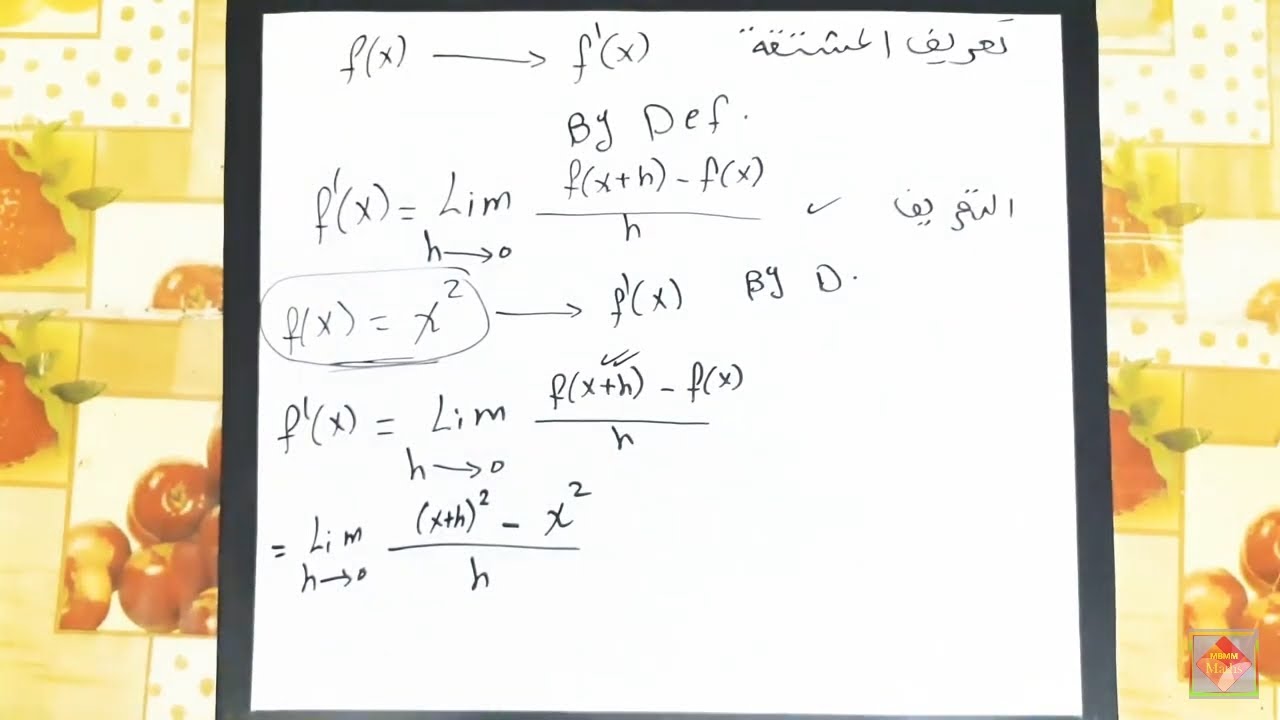 f(x) ⟶ f'(x) تعريف المشتقة
By Def.
f'(x) = Lim h→0 (f(x+h) - f(x)) / h ✓ التعريف
f(x) = x² ⟶ f'(x) By D.
f'(x) = Lim h→0 (f(x+h) - f(x)) / h
= Lim h→0 ((x+h)² - x²) / h
MBMM
Maths